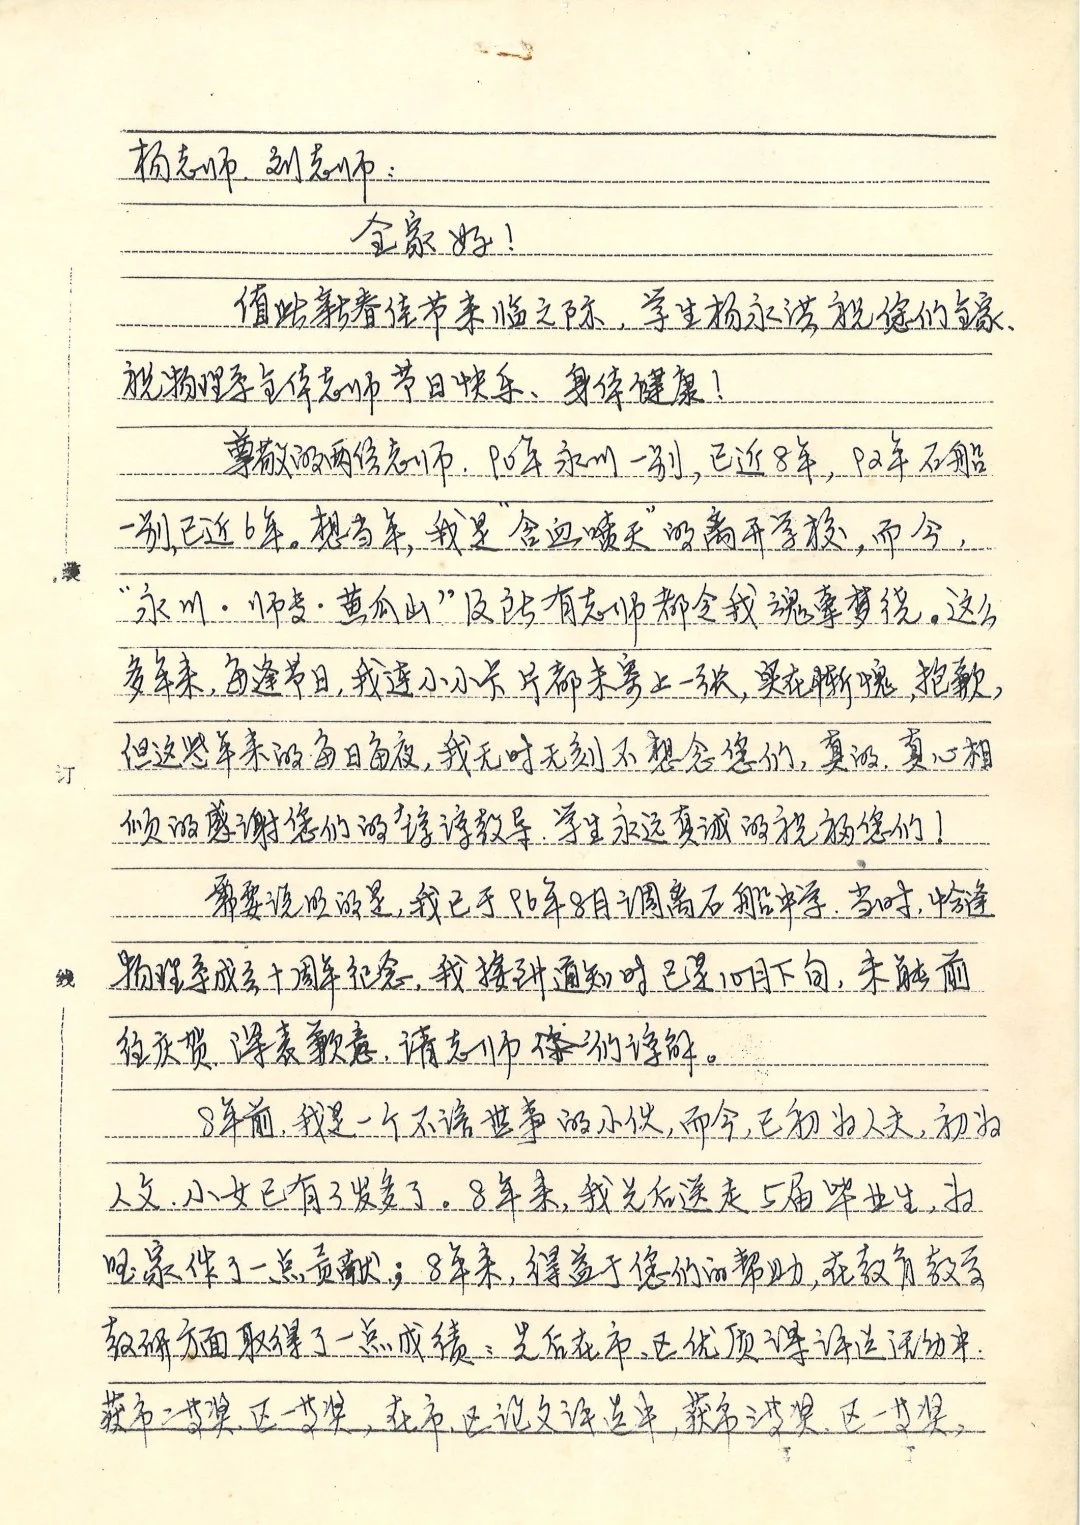 杨老师、刘老师：
全家好！
值此新春佳节来临之际，学生杨永洪祝您们全家、
祝物理系全体老师节日快乐、身体健康！
尊敬的两位老师，90年永川一别，已近8年，92年石船
一别，已近6年。想当年，我是“含血喷天”的离开学校，而今，
“永川·师专·黄瓜山”及所有老师都令我魂牵梦绕。这么
多年来，每逢节日，我连小小卡片都未寄上一张，实在惭愧，抱歉，
但这些年来的每日每夜，我无时无刻不想念您们，真的，真心相
倾的感谢您们的谆谆教导，学生永远真诚的祝福您们！
装
订
线
需要说明的是，我已于96年8月调离石船中学，当时，恰逢
物理系成立十周年纪念，我接到通知时已是10月下旬，未能前
往庆贺，深表歉意，请老师们谅解。
8年前，我是一个不谙世事的小伙，而今，已初为人夫，初为
人父，小女已有3岁多了。8年来，我先后送走5届毕业生，为
国家作了一点贡献；8年来，得益于您们的帮助，在教育教学
教研方面取得了一点成绩：先后在市、区优质课评选活动中，
获市二等奖，区一等奖，在市、区论文评选中，获市三等奖，区一等奖，